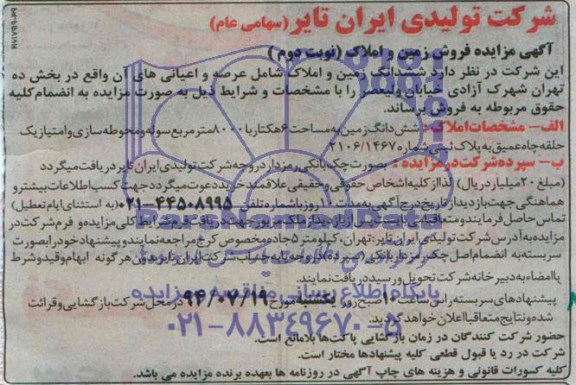 شرکت تولیدی ایران تایر (سهامی عام)
آگهی مزایده فروش زمین و املاک (نوبت دوم)
این شرکت در نظر دارد ششدانگ زمین و املاک شامل عرصه و اعیانی های آن واقع در بخش ده
تهران شهرک آزادی خیابان ولیعصر را با مشخصات و شرایط ذیل به صورت مزایده به انضمام کلیه
حقوق مربوطه به فروش برساند.
الف- مشخصات املاک: شش دانگ زمین به مساحت ۶ هکتار با ۸۰۰۰ متر مربع سوله و محوطه سازی و امتیاز یک
حلقه چاه عمیق به پلاک ثبتی شماره ۲۱۰۶/۱۴۶۷
ب- سپرده شرکت در مزایده: بصورت چک بانکی رمزدار در وجه شرکت تولیدی ایران تایر دریافت میگردد
(مبلغ ۲۰ میلیارد ریال) لذا از کلیه اشخاص حقوقی و حقیقی علاقمند خرید دعوت میگردد جهت کسب اطلاعات بیشتر و
هماهنگی جهت بازدید از تاریخ درج آگهی به مدت ۱۰ روز با شماره تلفن ۴۴۵۰۸۹۹۵-۰۲۱ (به استثنای ایام تعطیل)
تماس حاصل فرمایند و متعاقباً پس از بازدید از ملک مزبور جهت دریافت فرم شرایط کلی مزایده و فرم شرکت در
مزایده به آدرس شرکت تولیدی ایران تایر: تهران، کیلومتر ۵ جاده مخصوص کرج مراجعه نمایند و پیشنهاد خود را بصورت
سربسته به انضمام اصل چک رمزدار بانکی (سپرده) در وجه شرکت ایران تایر بدون هر گونه ابهام و قید و شرط
با امضاء به دبیرخانه شرکت تحویل و رسید دریافت نمایند.
پیشنهادهای سربسته راس ساعت ۱۰ صبح روز یکشنبه مورخ ۹۴/۰۷/۱۹ در محل شرکت بازگشایی و قرائت
شده و نتایج متعاقباً اعلان خواهد گردید.
حضور شرکت کنندگان در زمان بازگشایی پاکت‌ها بلامانع است.
شرکت در رد یا قبول قطعی کلیه پیشنهادها مختار است.
کلیه کسورات قانونی و هزینه های چاپ آگهی در روزنامه ها بعهده برنده مزایده می باشد.
ParsNamadData
پایگاه اطلاع رسانی مناقصه و مزایده
۰۲۱-۸۸۳۴۹۶۷۰-۵